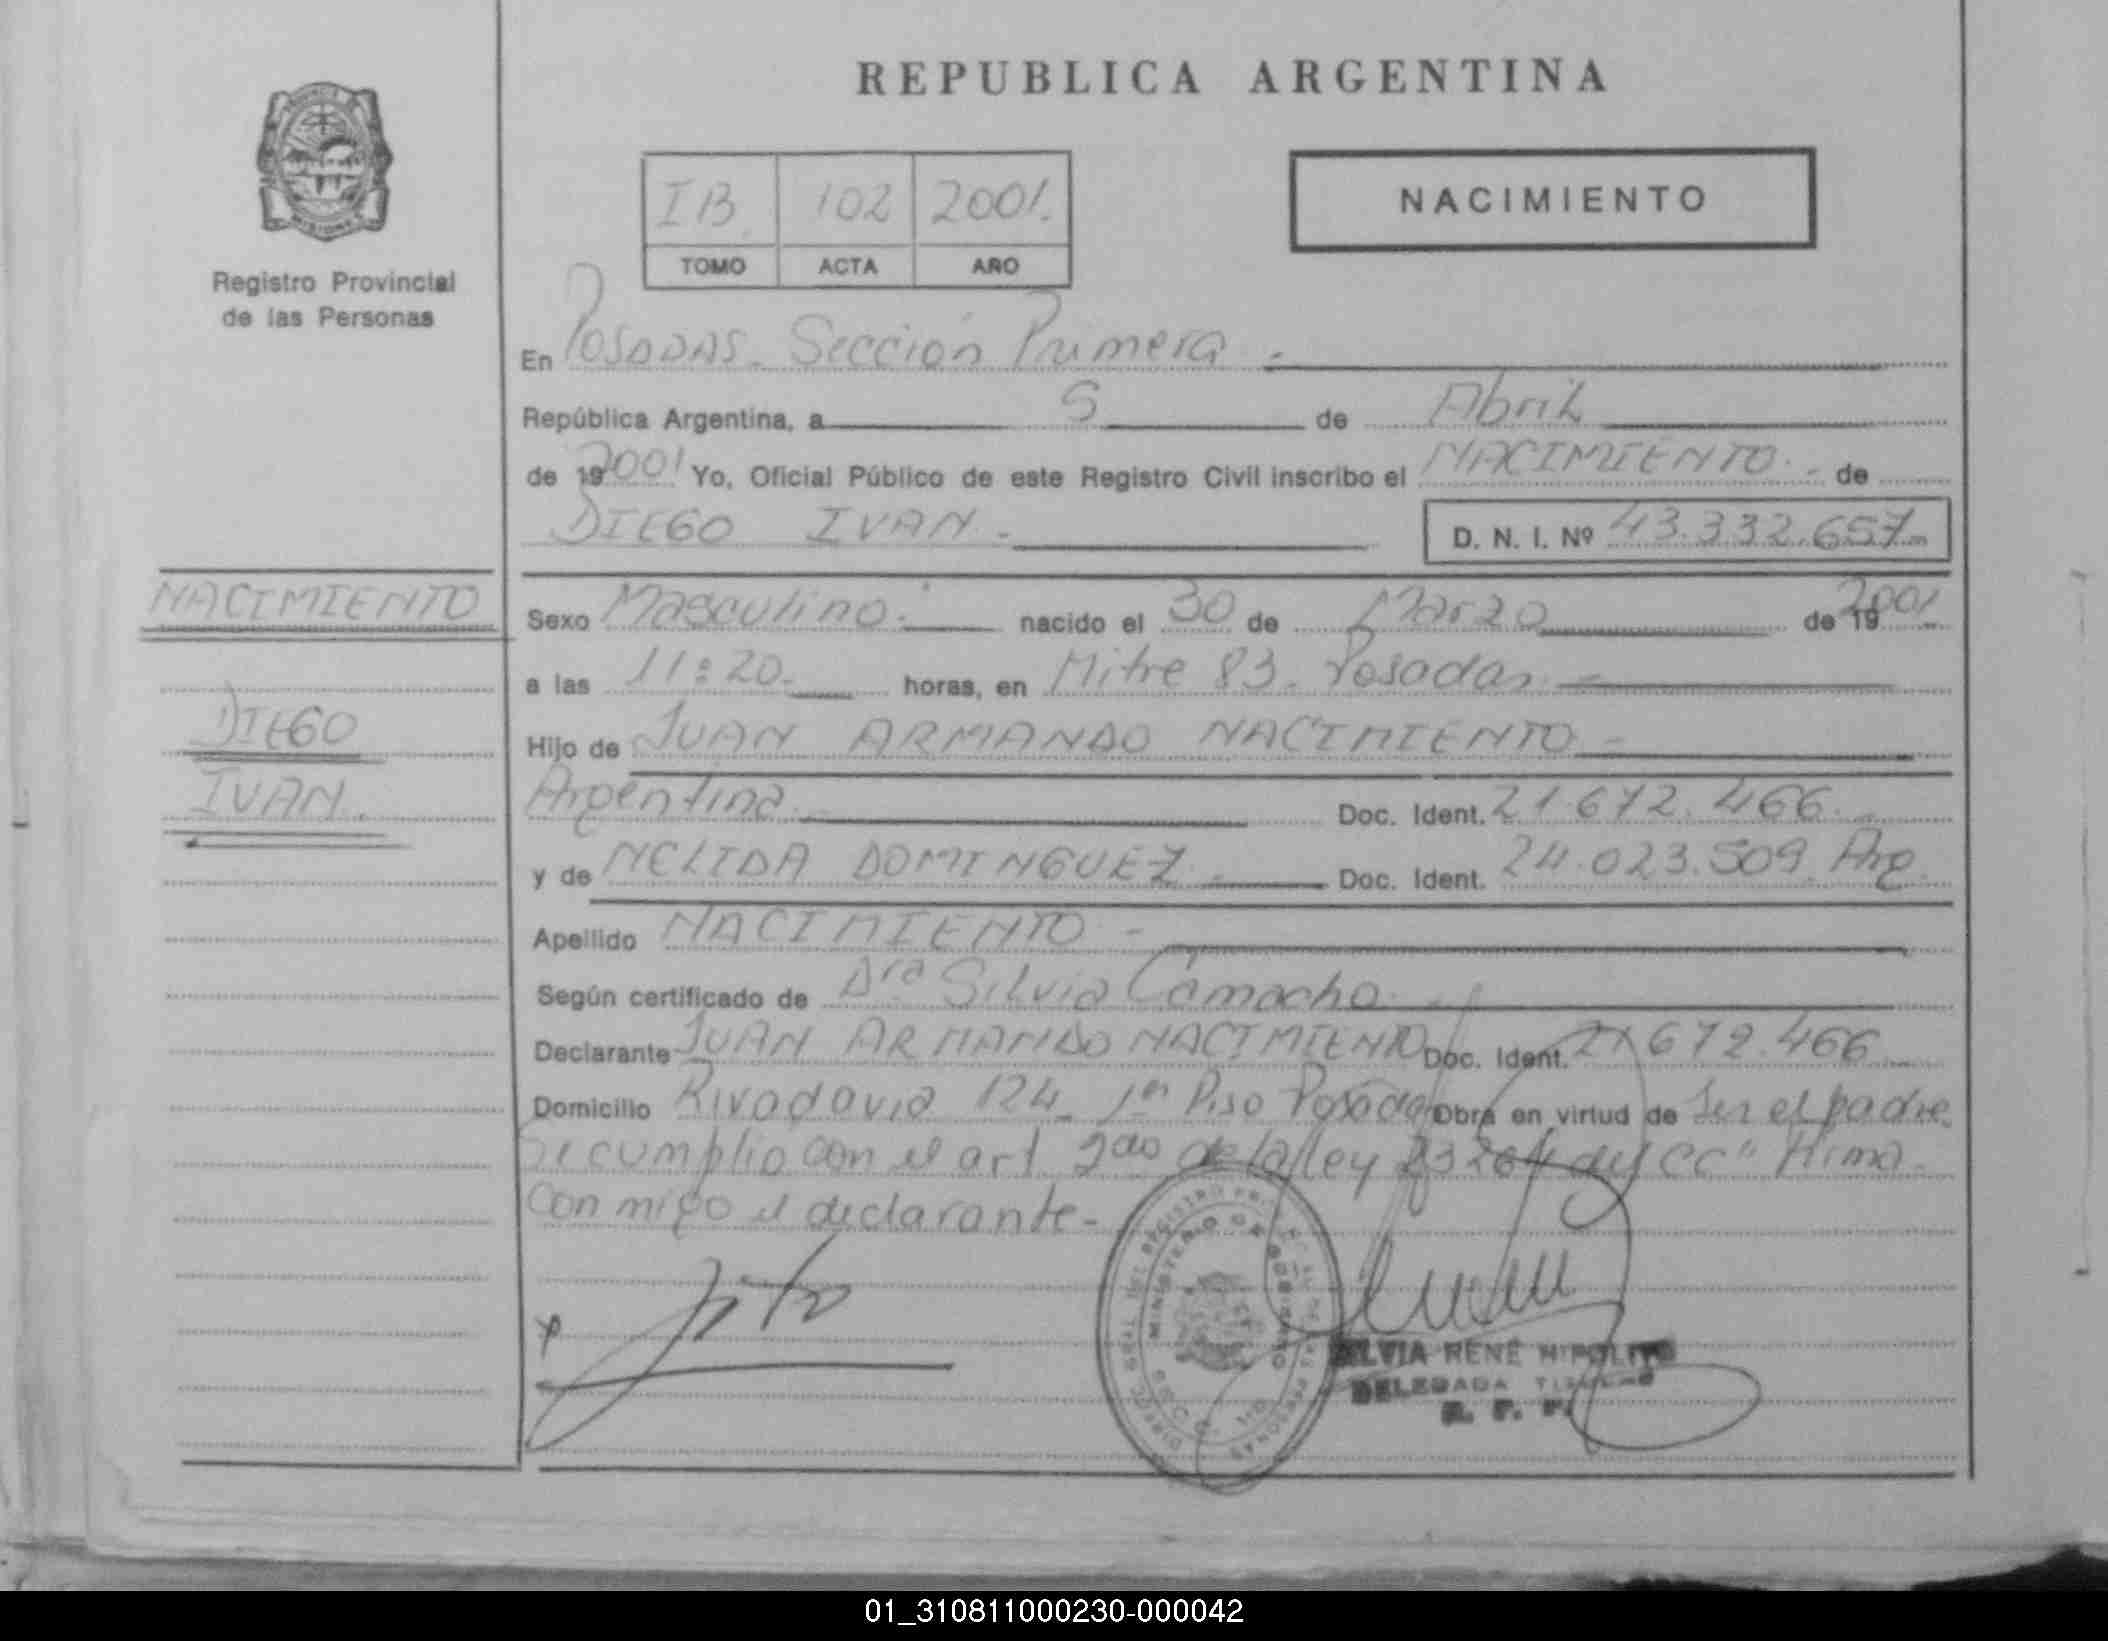 REPUBLICA ARGENTINA
IB. 102 2001.
TOMO ACTA AÑO
NACIMIENTO
Registro Provincial
de las Personas
En Posadas - Sección Primera -
República Argentina, a 5 de Abril
de 19 2001 Yo, Oficial Público de este Registro Civil inscribo el NACIMIENTO - de
DIEGO IVAN - D. N. I. Nº 43.332.657
NACIMIENTO
DIEGO
IVAN.
Sexo Masculino. nacido el 30 de Marzo de 19 2001
a las 11:20. horas, en Mitre 83 - Posadas -
Hijo de JUAN ARMANDO NACIMIENTO -
Argentina - Doc. Ident. 21.672.466.
y de NELIDA DOMINGUEZ - Doc. Ident. 24.023.509. Arg.
Apellido NACIMIENTO -
Según certificado de Dra Silvia Camacho -
Declarante JUAN ARMANDO NACIMIENTO Doc. Ident. 21.672.466
Domicilio Rivadavia 124 - 1er Piso Posadas Obra en virtud de Ser el padre.
Se cumplio con el art 2do de la ley 23264 del CC" Firma
con migo el declarante -
MINISTERIO DE GOBIERNO
MISIONES
SILVIA RENÉ HIPOLITO
DELEGADA TITULAR
R. P. P.
01_310811000230-000042